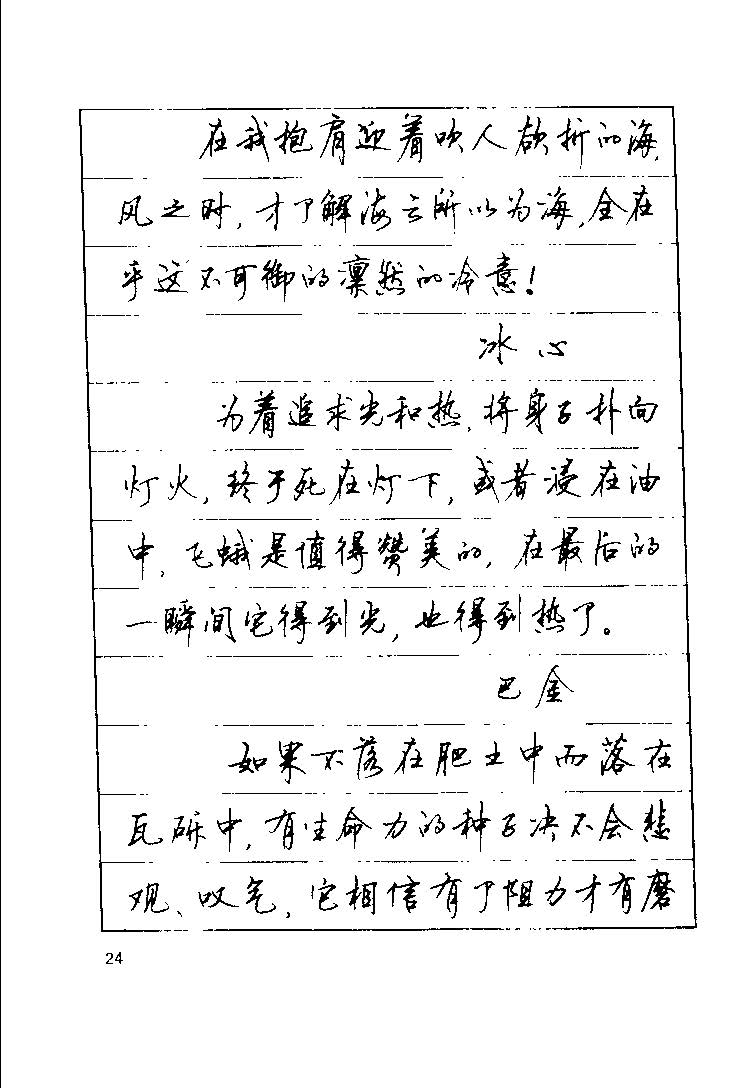 在我抱肩迎着吹人欲折的海
风之时,才了解海云所以为海,全在
乎这不可御的凛然的冷意!
冰心
为着追求光和热,将身子扑向
灯火,终于死在灯下,或者浸在油
中,飞蛾是值得赞美的,在最后的
一瞬间它得到光,也得到热了。
巴金
如果不落在肥土中而落在
瓦砾中,有生命力的种子决不会悲
观、叹气,它相信有了阻力才有磨
24